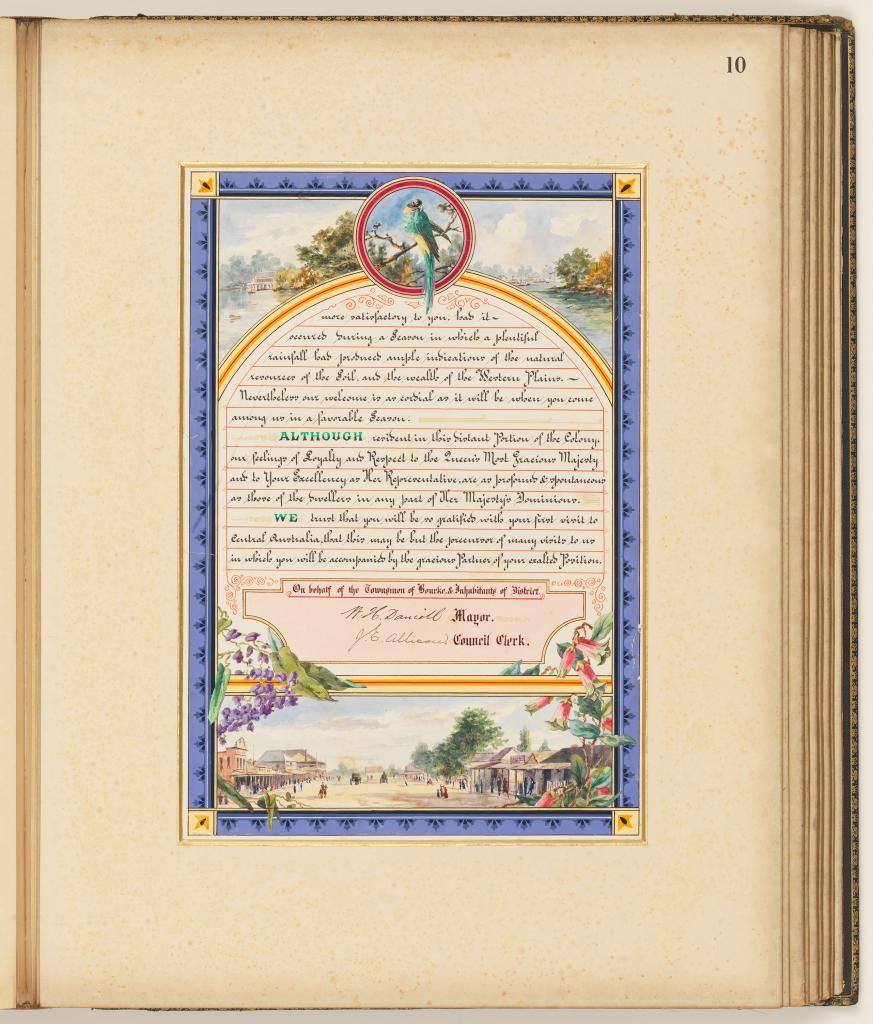 10
more satisfactory to you, had it~
occured during a Season in which a plentiful
rainfall had produced ample indications of the natural
resources of the Soil, and the wealth of the Western Plains.~
Nevertheless our welcome is as cordial as it will be when you come
among us in a favorable Season.
ALTHOUGH resident in this distant Portion of the Colony,
our feelings of Loyalty and Respect to the Queen's Most Gracious Majesty
and to Your Excellency as Her Representative, are as profound & spontaneous
as those of the dwellers in any part of Her Majesty's Dominions.
WE trust that you will be so gratified with your first visit to
Central Australia, that this may be but the precursor of many visits to us
in which you will be accompanied by the gracious Partner of your exalted Position.
On behalf of the Townsmen of Bourke, & Inhabitants of District.
Mayor.
Council Clerk.